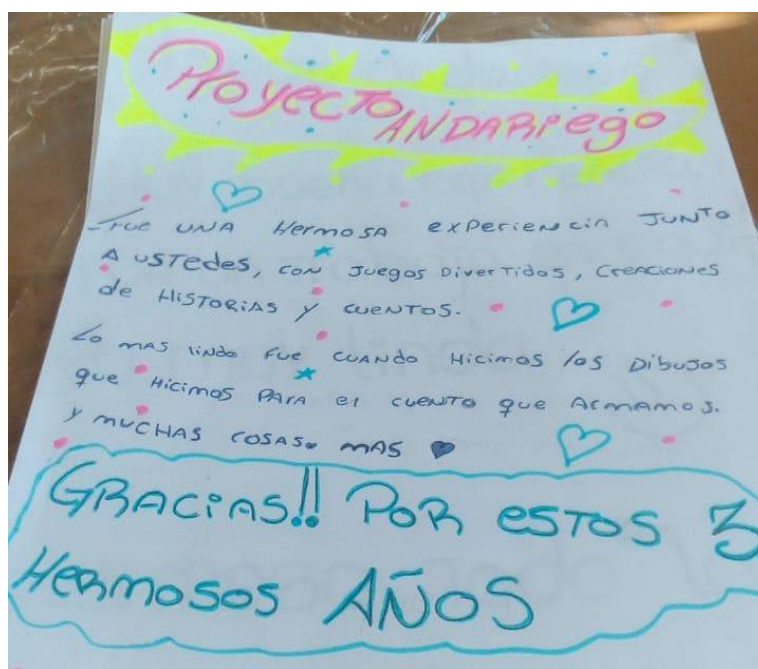 Proyecto
ANDARiego
Fue UNA HermosA experiencia JUNTO
A USTedes, con Juegos DiverTidos, Creaciones
de HisTORiAs y cuenTos.
Lo mas lindo Fue cuando Hicimos los Dibujos
que Hicimos PARA el cuento que Armamos.
y muchas cosas. mas
GRACiAS!! POR esTos 3
Hermosos AÑOS